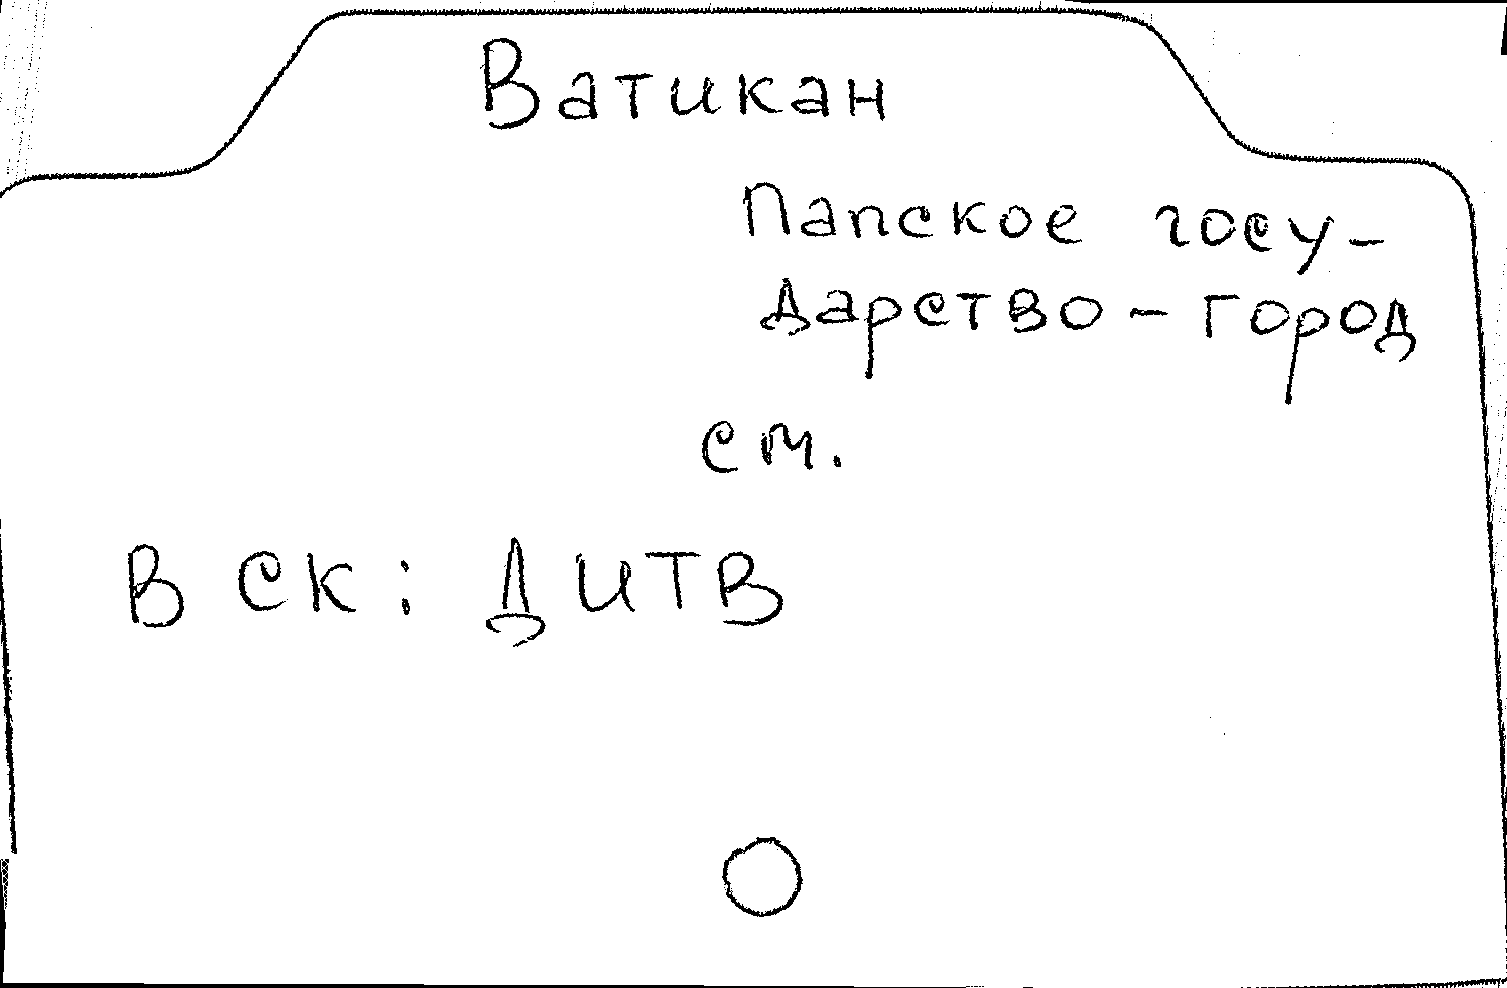 Ватикан
Папское госу-
дарство - город
см.
В СК: ДИТВ